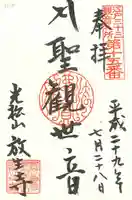 奉拝
江戸三十三
観音札所
第十五番
聖観世音
平成二十九年
七月二十八日
光松山
放生寺